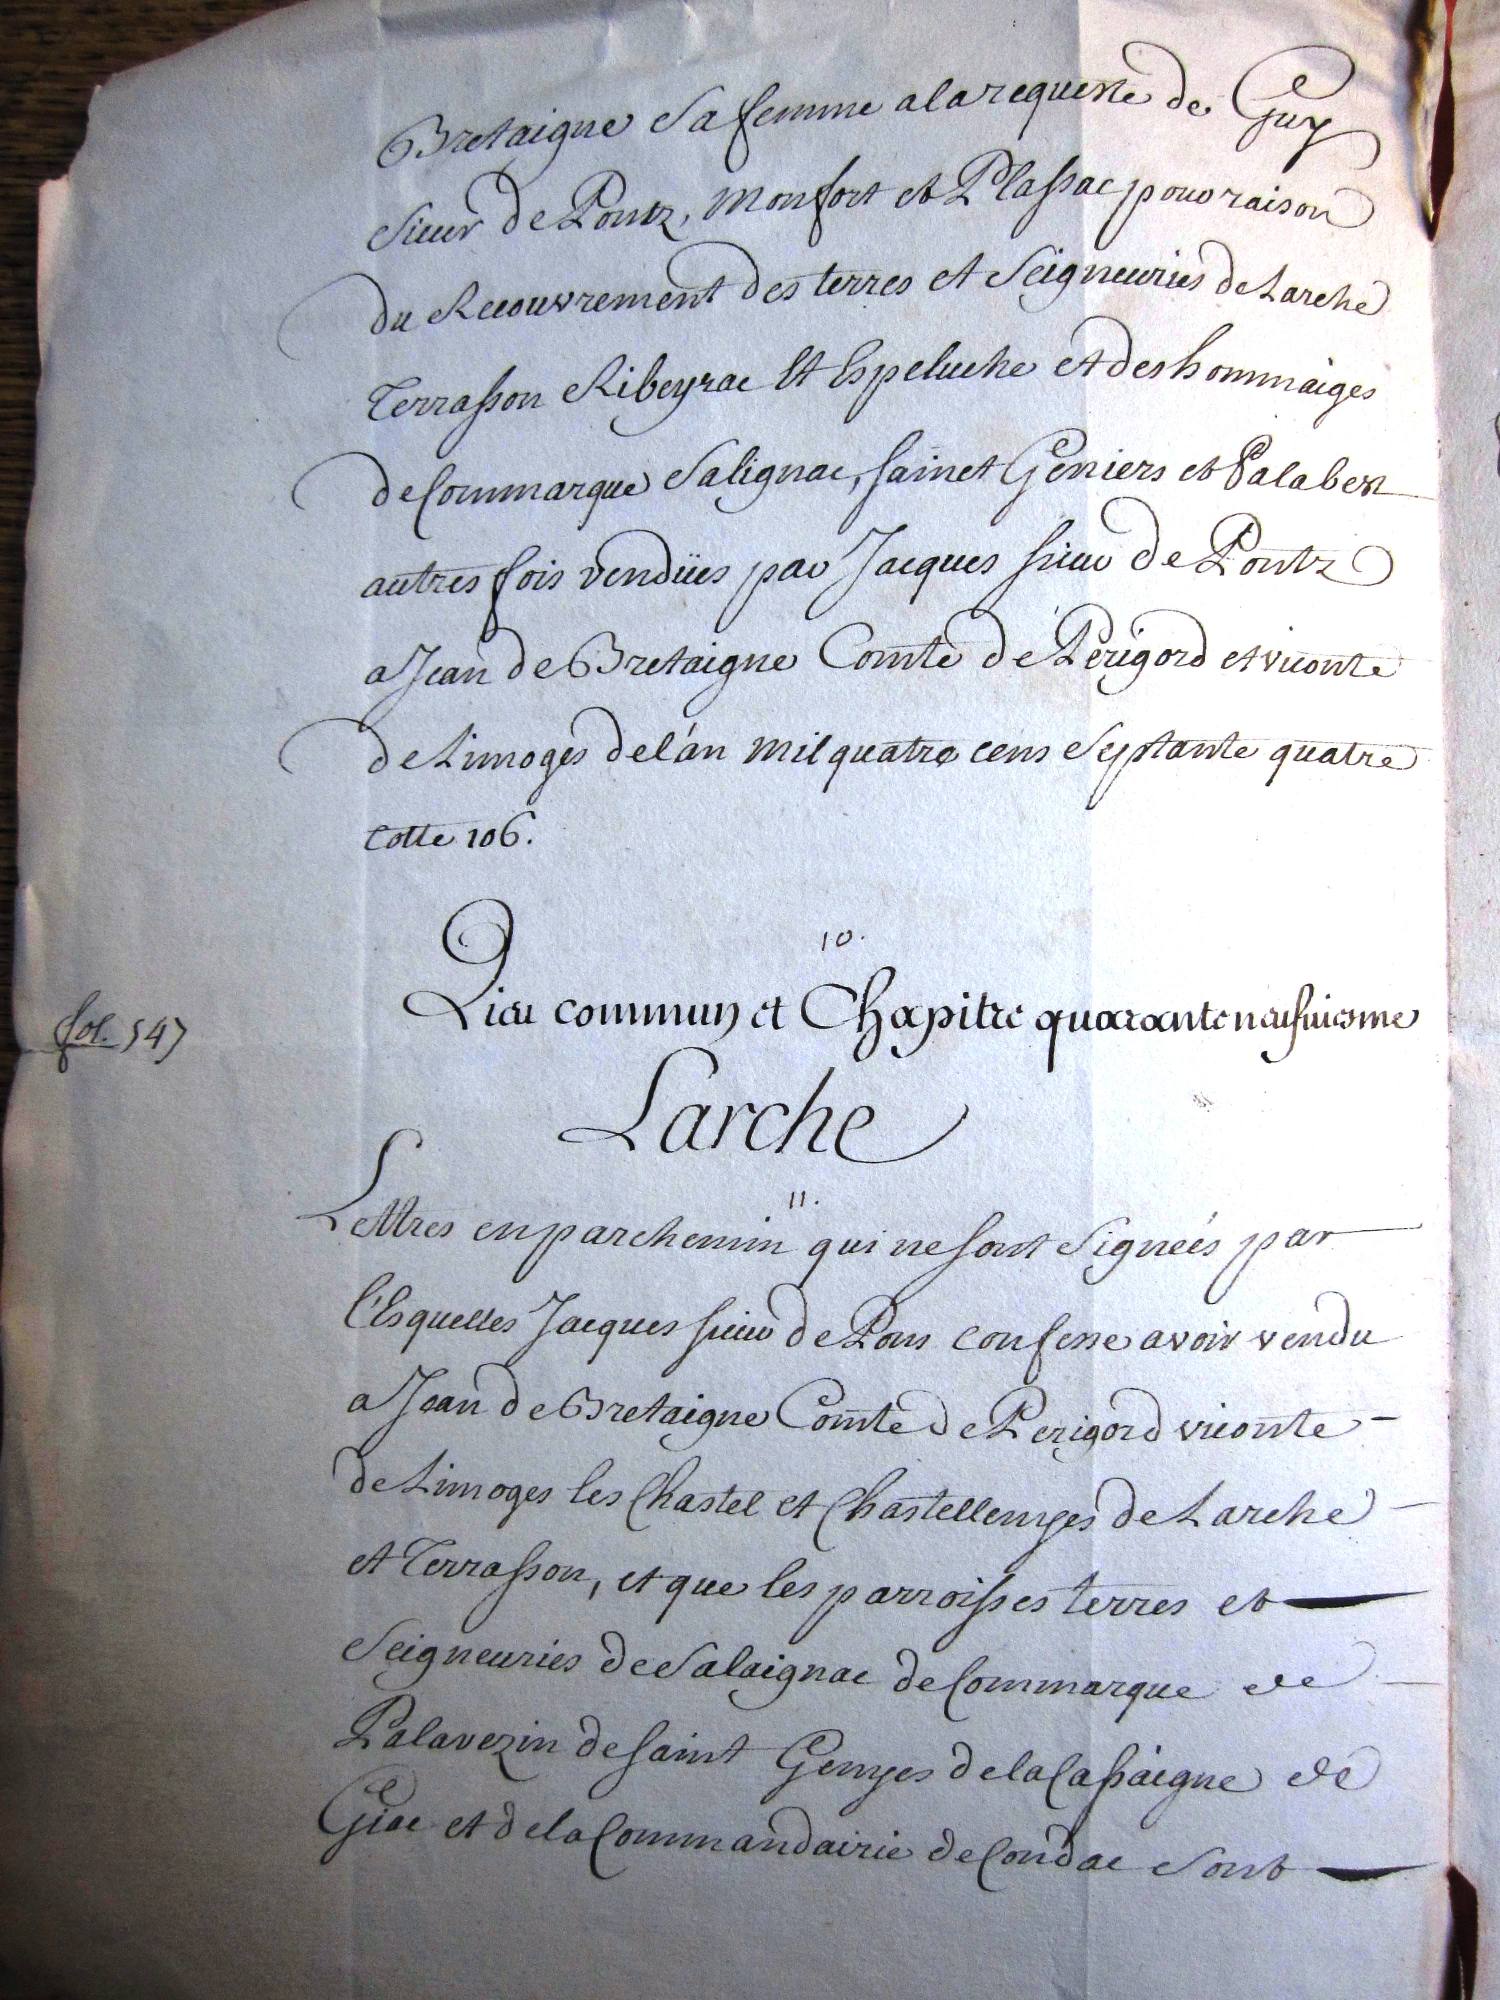 Bretaigne sa femme a la requeste de Guy
sieur de Pontz, Monfort et Plassac pour raison
du Recouvrement des terres et seigneuries de Larche
Terrasson Ribeyrac Et Espeluche et des hommaiges
de Commarque Salignac, sainct Geniers et Palabezi
autres fois vendües par Jacques sieur de Pontz
a Jean de Bretaigne Comte de Périgord et viconte
de Limoges de l'an mil quatre cens septante quatre
Cotte 106.
10.
Lieu commun et Chapitre quarante neufuiesme
fol. 547
Larche
11.
Lettres en parchemin qui ne sont signeés par
l'Esquelles Jacques sieur de Pons confesse avoir vendu
a Jean de Bretaigne Comte de Perigord viconte
de Limoges les Chastel et Chastellenyes de Larche
et Terrasson, et que les parroisses terres et
seigneuries de Salaignac de Commarque de
Palavezin de saint Genyes de la Cassaigne de
Giac et de la Commandairie de Condac sont